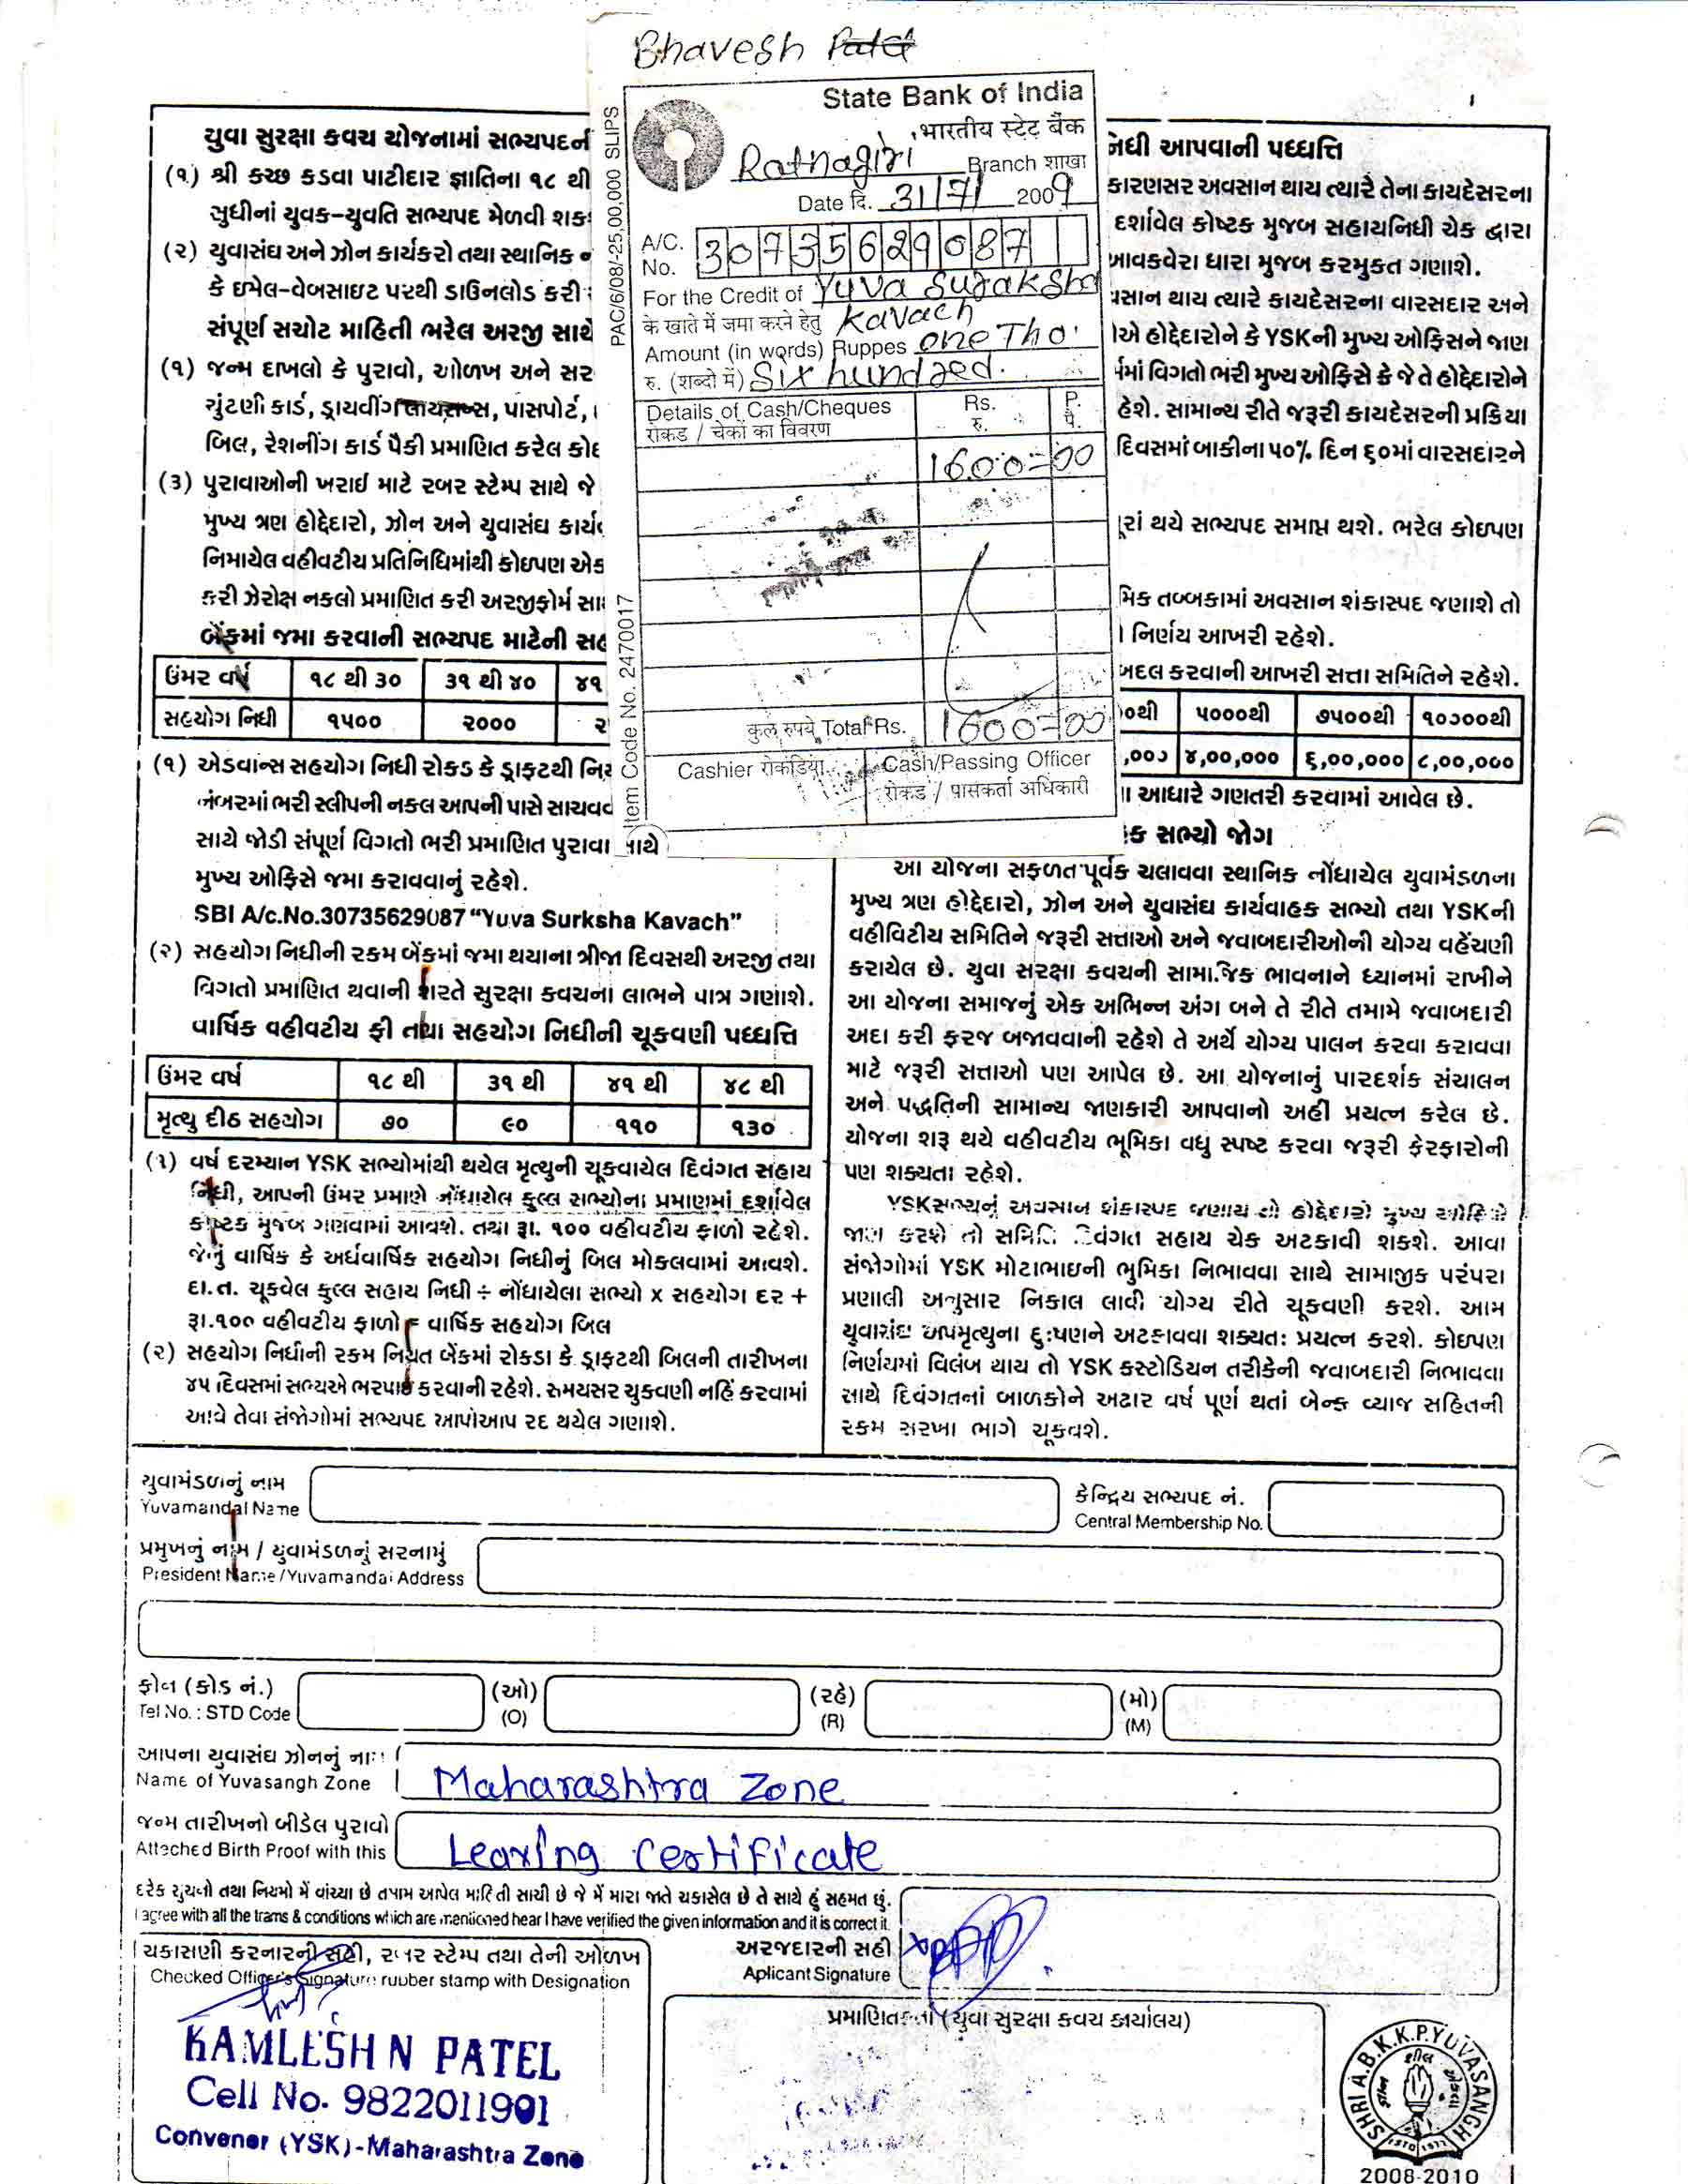 Bhavesh Patel
State Bank of India
भारतीय स्टेट बैंक
Ratnagiri Branch शाखा
Date दि. 31/7/ 2009
A/C. No. 30735629087
For the Credit of Yuva Suraksha
के खाते में जमा करने हेतु Kavach
Amount (in words) Ruppes one Tho.
रु. (शब्दो में) Six hundred.
Details of Cash/Cheques Rs. P.
रोकड / चेकों का विवरण रु. पै.
1600=00
कुल रुपये Total Rs. 1600=00
Cashier रोकडिया Cash/Passing Officer
रोकड / पासकर्ता अधिकारी
PAC/6/08/-25,00,000 SLIPS
Item Code No. 2470017
યુવા સુરક્ષા કવચ યોજનામાં સભ્યપદની
(૧) શ્રી કચ્છ કડવા પાટીદાર જ્ઞાતિના ૧૮ થી
સુધીનાં યુવક-યુવતિ સભ્યપદ મેળવી
(૨) યુવાસંઘ અને ઝોન કાર્યકરો તથા સ્થાનિક
કે ઇમેલ-વેબસાઇટ પરથી ડાઉનલોડ કરી
સંપૂર્ણ સચોટ માહિતી ભરેલ અરજી સાથે
(૧) જન્મ દાખલો કે પુરાવો, ઓળખ અને
ચુંટણી કાર્ડ, ડ્રાયવીંગ લાયસન્સ, પાસપોર્ટ,
બિલ, રેશનીંગ કાર્ડ પૈકી પ્રમાણિત કરેલ
(૩) પુરાવાઓની ખરાઇ માટે રબર સ્ટેમ્પ સાથે જે
મુખ્ય ત્રણ હોદ્દેદારો, ઝોન અને યુવાસંઘ
નિમાયેલ વહીવટીય પ્રતિનિધિમાંથી કોઇપણ એક
કરી ઝેરોક્ષ નકલો પ્રમાણિત કરી અરજીફોર્મ
બેંકમાં જમા કરવાની સભ્યપદ માટેની
ઉંમર વર્ષ ૧૮ થી ૩૦ ૩૧ થી ૪૦ ૪૧
સહયોગ નિધી ૧૫૦૦ ૨૦૦૦
(૧) એડવાન્સ સહયોગ નિધી રોકડ કે ડ્રાફટથી
નંબરમાં ભરી સ્લીપની નકલ આપની પાસે
સાથે જોડી સંપૂર્ણ વિગતો ભરી પ્રમાણિત પુરાવા સાથે
મુખ્ય ઓફિસે જમા કરાવવાનું રહેશે.
SBI A/c.No.30735629087 “Yuva Surksha Kavach”
(૨) સહયોગ નિધીની રકમ બેંકમાં જમા થયાના ત્રીજા દિવસથી અરજી તથા
વિગતો પ્રમાણિત થવાની શરતે સુરક્ષા કવચનાં લાભને પાત્ર ગણાશે.
વાર્ષિક વહીવટીય ફી તથા સહયોગ નિધીની ચૂકવણી પધ્ધત્તિ
ઉંમર વર્ષ ૧૮ થી ૩૧ થી ૪૧ થી ૪૮ થી
મૃત્યુ દીઠ સહયોગ ૭૦ ૯૦ ૧૧૦ ૧૩૦
(૧) વર્ષ દરમ્યાન YSK સભ્યોમાંથી થયેલ મૃત્યુની ચૂકવાયેલ દિવંગત સહાય
નિધી, આપની ઉંમર પ્રમાણે નોંધાયેલ કુલ્લ સભ્યોના પ્રમાણમાં દર્શાવેલ
કોષ્ટક મુજબ ગણવામાં આવશે. તથા રૂા. ૧૦૦ વહીવટીય ફાળો રહેશે.
જેનું વાર્ષિક કે અર્ધવાર્ષિક સહયોગ નિધીનું બિલ મોકલવામાં આવશે.
દા.ત. ચૂકવેલ કુલ્લ સહાય નિધી ÷ નોંધાયેલા સભ્યો x સહયોગ દર +
રૂા.૧૦૦ વહીવટીય ફાળો = વાર્ષિક સહયોગ બિલ
(૨) સહયોગ નિધીની રકમ નિયત બેંકમાં રોકડા કે ડ્રાફટથી બિલની તારીખના
૪૫ દિવસમાં સભ્યએ ભરપાઇ કરવાની રહેશે. સમયસર ચુકવણી નહિં કરવામાં
આવે તેવા સંજોગોમાં સભ્યપદ આપોઆપ રદ થયેલ ગણાશે.
નિધી આપવાની પધ્ધત્તિ
કારણસર અવસાન થાય ત્યારે તેના કાયદેસરના
દર્શાવેલ કોષ્ટક મુજબ સહાયનિધી ચેક દ્વારા
આવકવેરા ધારા મુજબ કરમુકત ગણાશે.
અવસાન થાય ત્યારે કાયદેસરના વારસદાર અને
હોદ્દેદારોને કે YSKની મુખ્ય ઓફિસને જાણ
વિગતો ભરી મુખ્ય ઓફિસે કે જે તે હોદ્દેદારોને
રહેશે. સામાન્ય રીતે જરૂરી કાયદેસરની પ્રક્રિયા
દિવસમાં બાકીના ૫૦% દિન ૬૦માં વારસદારને
પૂરાં થયે સભ્યપદ સમાપ્ત થશે. ભરેલ કોઇપણ
તબ્બકામાં અવસાન શંકાસ્પદ જણાશે તો
નિર્ણય આખરી રહેશે.
બદલ કરવાની આખરી સત્તા સમિતિને રહેશે.
૫૦૦૦થી ૭૫૦૦થી ૧૦૦૦૦થી
૪,૦૦,૦૦૦ ૬,૦૦,૦૦૦ ૮,૦૦,૦૦૦
આધારે ગણતરી કરવામાં આવેલ છે.
સભ્યો જોગ
આ યોજના સફળતાપૂર્વક ચલાવવા સ્થાનિક નોંધાયેલ યુવામંડળના
મુખ્ય ત્રણ હોદ્દેદારો, ઝોન અને યુવાસંઘ કાર્યવાહક સભ્યો તથા YSKની
વહીવિટીય સમિતિને જરૂરી સત્તાઓ અને જવાબદારીઓની યોગ્ય વહેંચણી
કરાયેલ છે. યુવા સરક્ષા કવચની સામાજિક ભાવનાને ધ્યાનમાં રાખીને
આ યોજના સમાજનું એક અભિન્ન અંગ બને તે રીતે તમામે જવાબદારી
અદા કરી ફરજ બજાવવાની રહેશે તે અર્થે યોગ્ય પાલન કરવા કરાવવા
માટે જરૂરી સત્તાઓ પણ આપેલ છે. આ યોજનાનું પારદર્શક સંચાલન
અને પદ્ધતિની સામાન્ય જાણકારી આપવાનો અહીં પ્રયત્ન કરેલ છે.
યોજના શરૂ થયે વહીવટીય ભૂમિકા વધુ સ્પષ્ટ કરવા જરૂરી ફેરફારોની
પણ શક્યતા રહેશે.
YSK સભ્યનું અવસાન શંકાસ્પદ જણાય તો હોદ્દેદારો મુખ્ય ઓફિસે
જાણ કરશે તો સમિતિ દિવંગત સહાય ચેક અટકાવી શકશે. આવા
સંજોગોમાં YSK મોટાભાઇની ભુમિકા નિભાવવા સાથે સામાજીક પરંપરા
પ્રણાલી અનુસાર નિકાલ લાવી યોગ્ય રીતે ચૂકવણી કરશે. આમ
યુવાસંઘ અપમૃત્યુના દુઃષણને અટકાવવા શક્યતઃ પ્રયત્ન કરશે. કોઇપણ
નિર્ણયમાં વિલંબ થાય તો YSK કસ્ટોડિયન તરીકેની જવાબદારી નિભાવવા
સાથે દિવંગતનાં બાળકોને અઢાર વર્ષ પૂર્ણ થતાં બેન્ક વ્યાજ સહિતની
રકમ સરખા ભાગે ચૂકવશે.
યુવામંડળનું નામ
Yuvamandal Name
કેન્દ્રિય સભ્યપદ નં.
Central Membership No.
પ્રમુખનું નામ / યુવામંડળનું સરનામું
President Name/Yuvamandal Address
ફોન (કોડ નં.) (ઓ) (રહે) (મો)
Tel No. : STD Code (O) (R) (M)
આપના યુવાસંઘ ઝોનનું નામ
Name of Yuvasangh Zone Maharashtra Zone
જન્મ તારીખનો બીડેલ પુરાવો
Atteched Birth Proof with this Leaving Certificate
દરેક સુચનો તથા નિયમો મેં વાંચ્યા છે તમામ આપેલ માહિતી સાચી છે જે મેં મારા જાતે ચકાસેલ છે તે સાથે હું સહમત છું.
I agree with all the trams & conditions which are mentioned hear I have verified the given information and it is correct it.
અરજદારની સહી
Aplicant Signature
ચકાસણી કરનારની સહી, રબર સ્ટેમ્પ તથા તેની ઓળખ
Checked Officer's Signature rubber stamp with Designation
KAMLESH N PATEL
Cell No. 9822011901
Convener (YSK)-Maharashtra Zone
પ્રમાણિતકર્તા (યુવા સુરક્ષા કવચ કાર્યાલય)
SHRI A.B.K.K.P.YUVASANGH
2008-2010